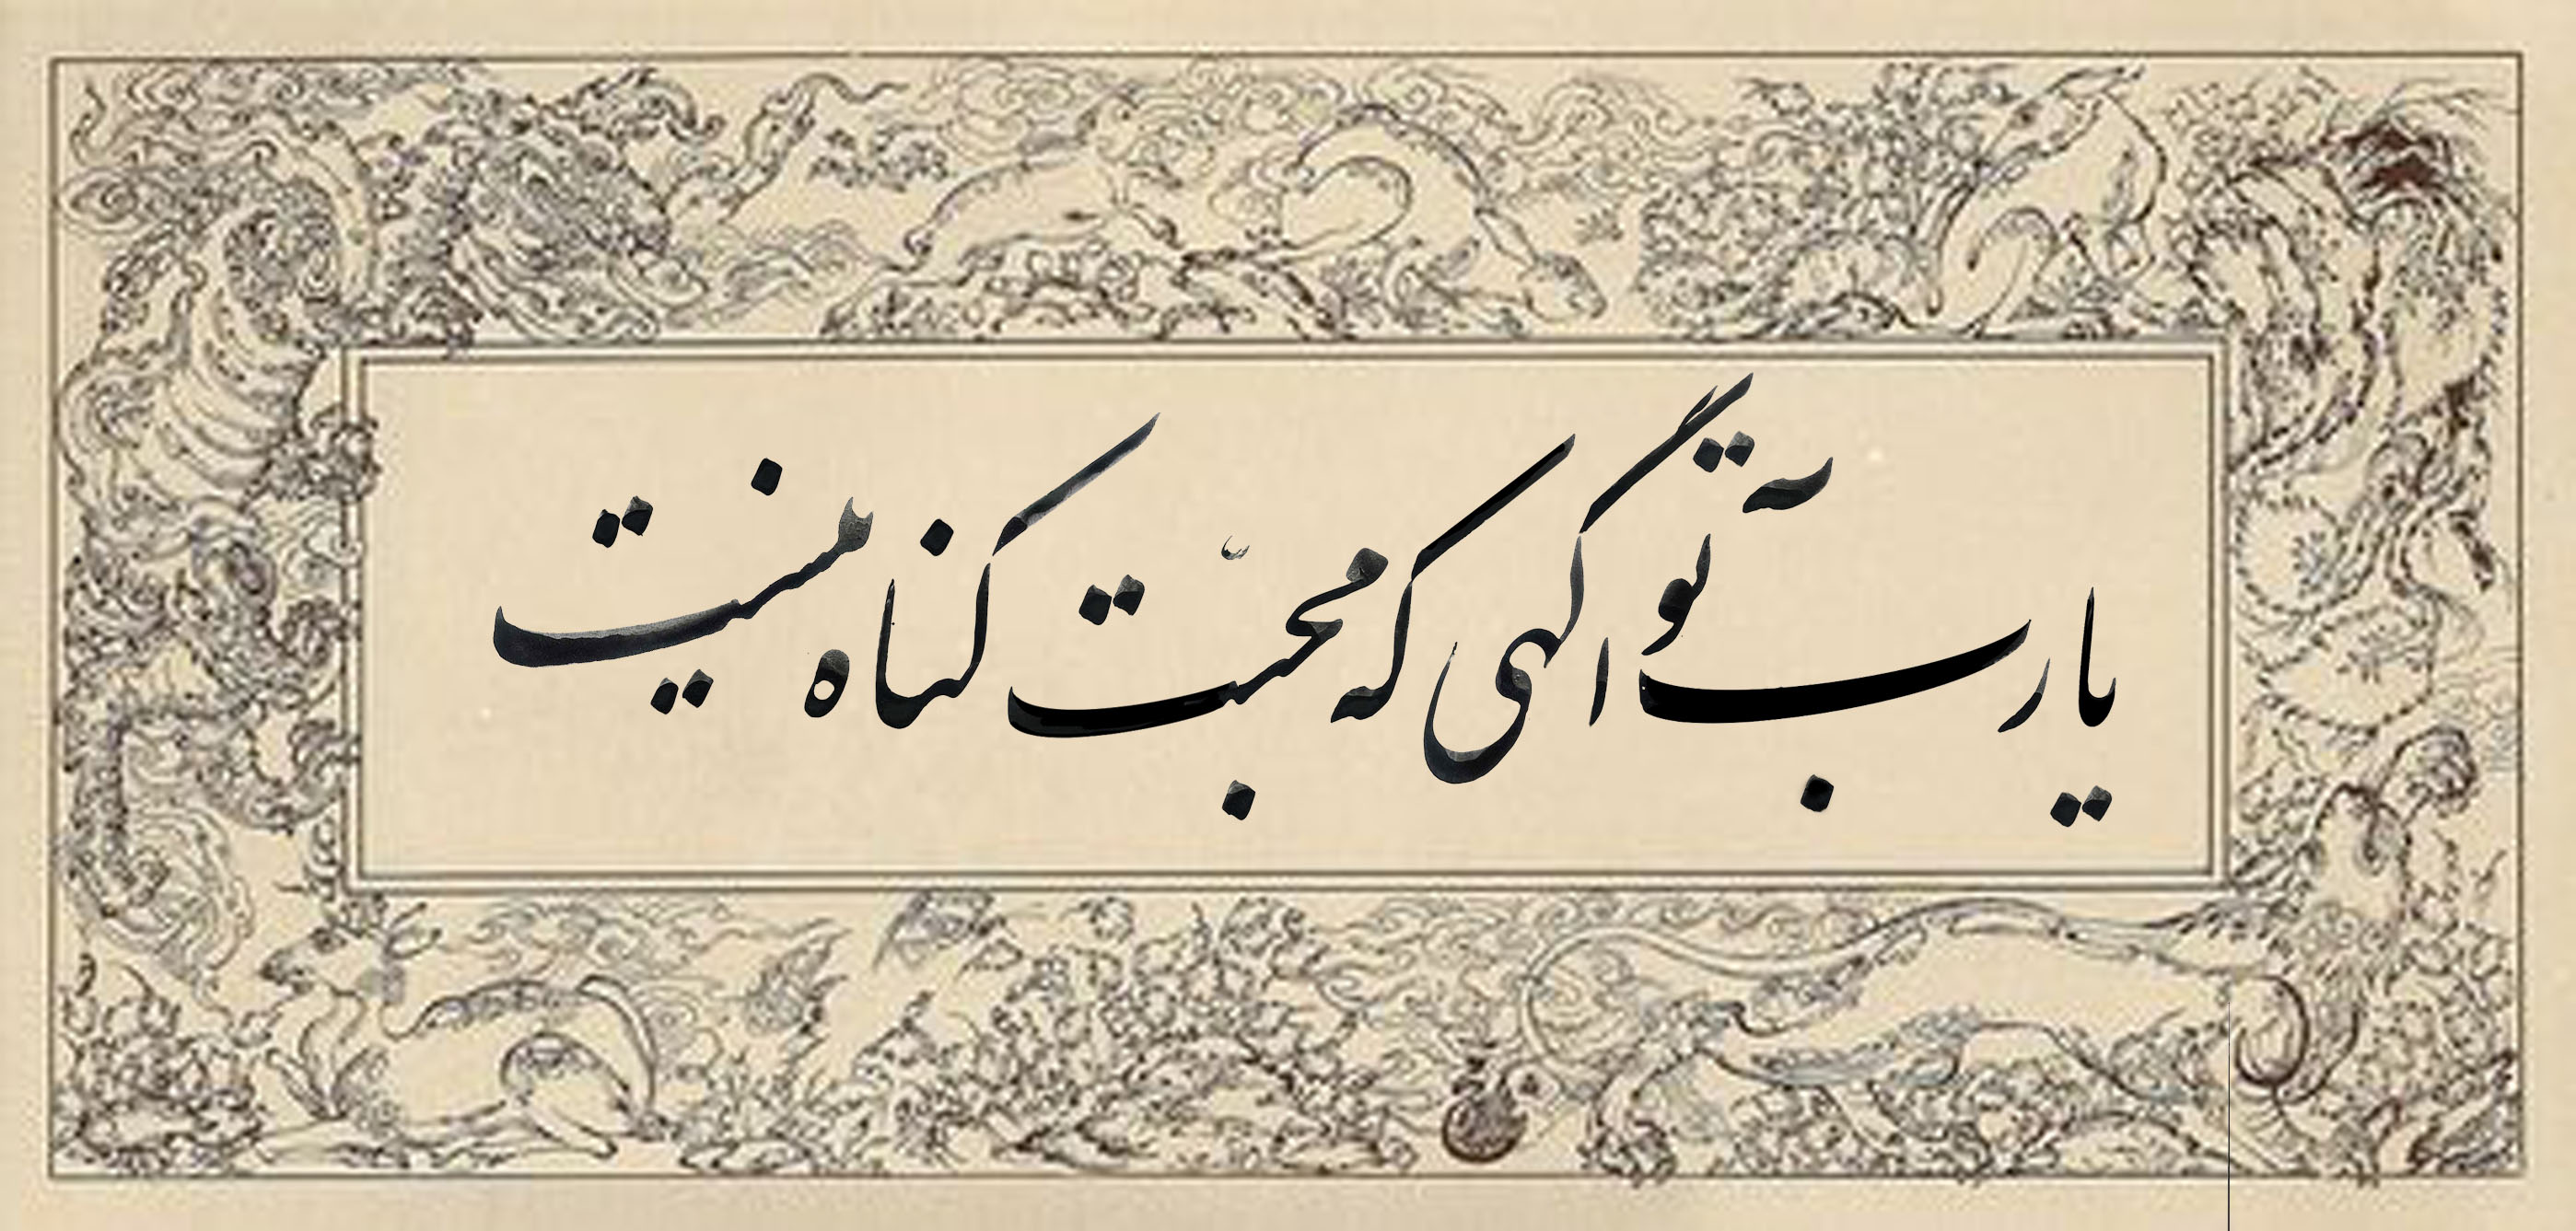 یا رب تو آگهی که محبّت گناه نیست